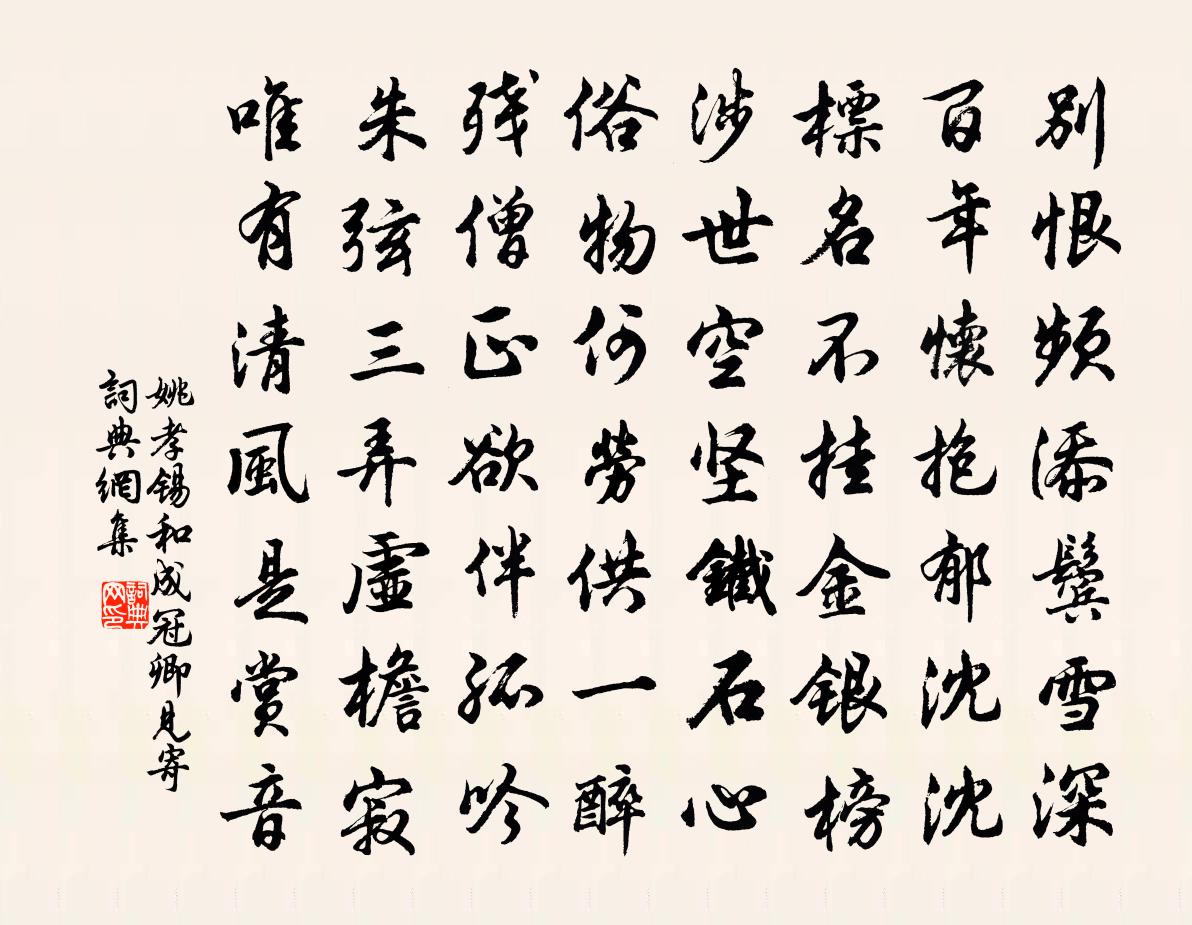 别恨頻添鬢雪深
百年懷抱郁沈沈
標名不挂金銀榜
涉世空坚鐵石心
俗物何勞供一醉
残僧正欲伴孤吟
朱弦三弄虛檐寂
唯有清風是賞音
姚孝锡和成冠卿見寄
詞典網集
詞典
网印